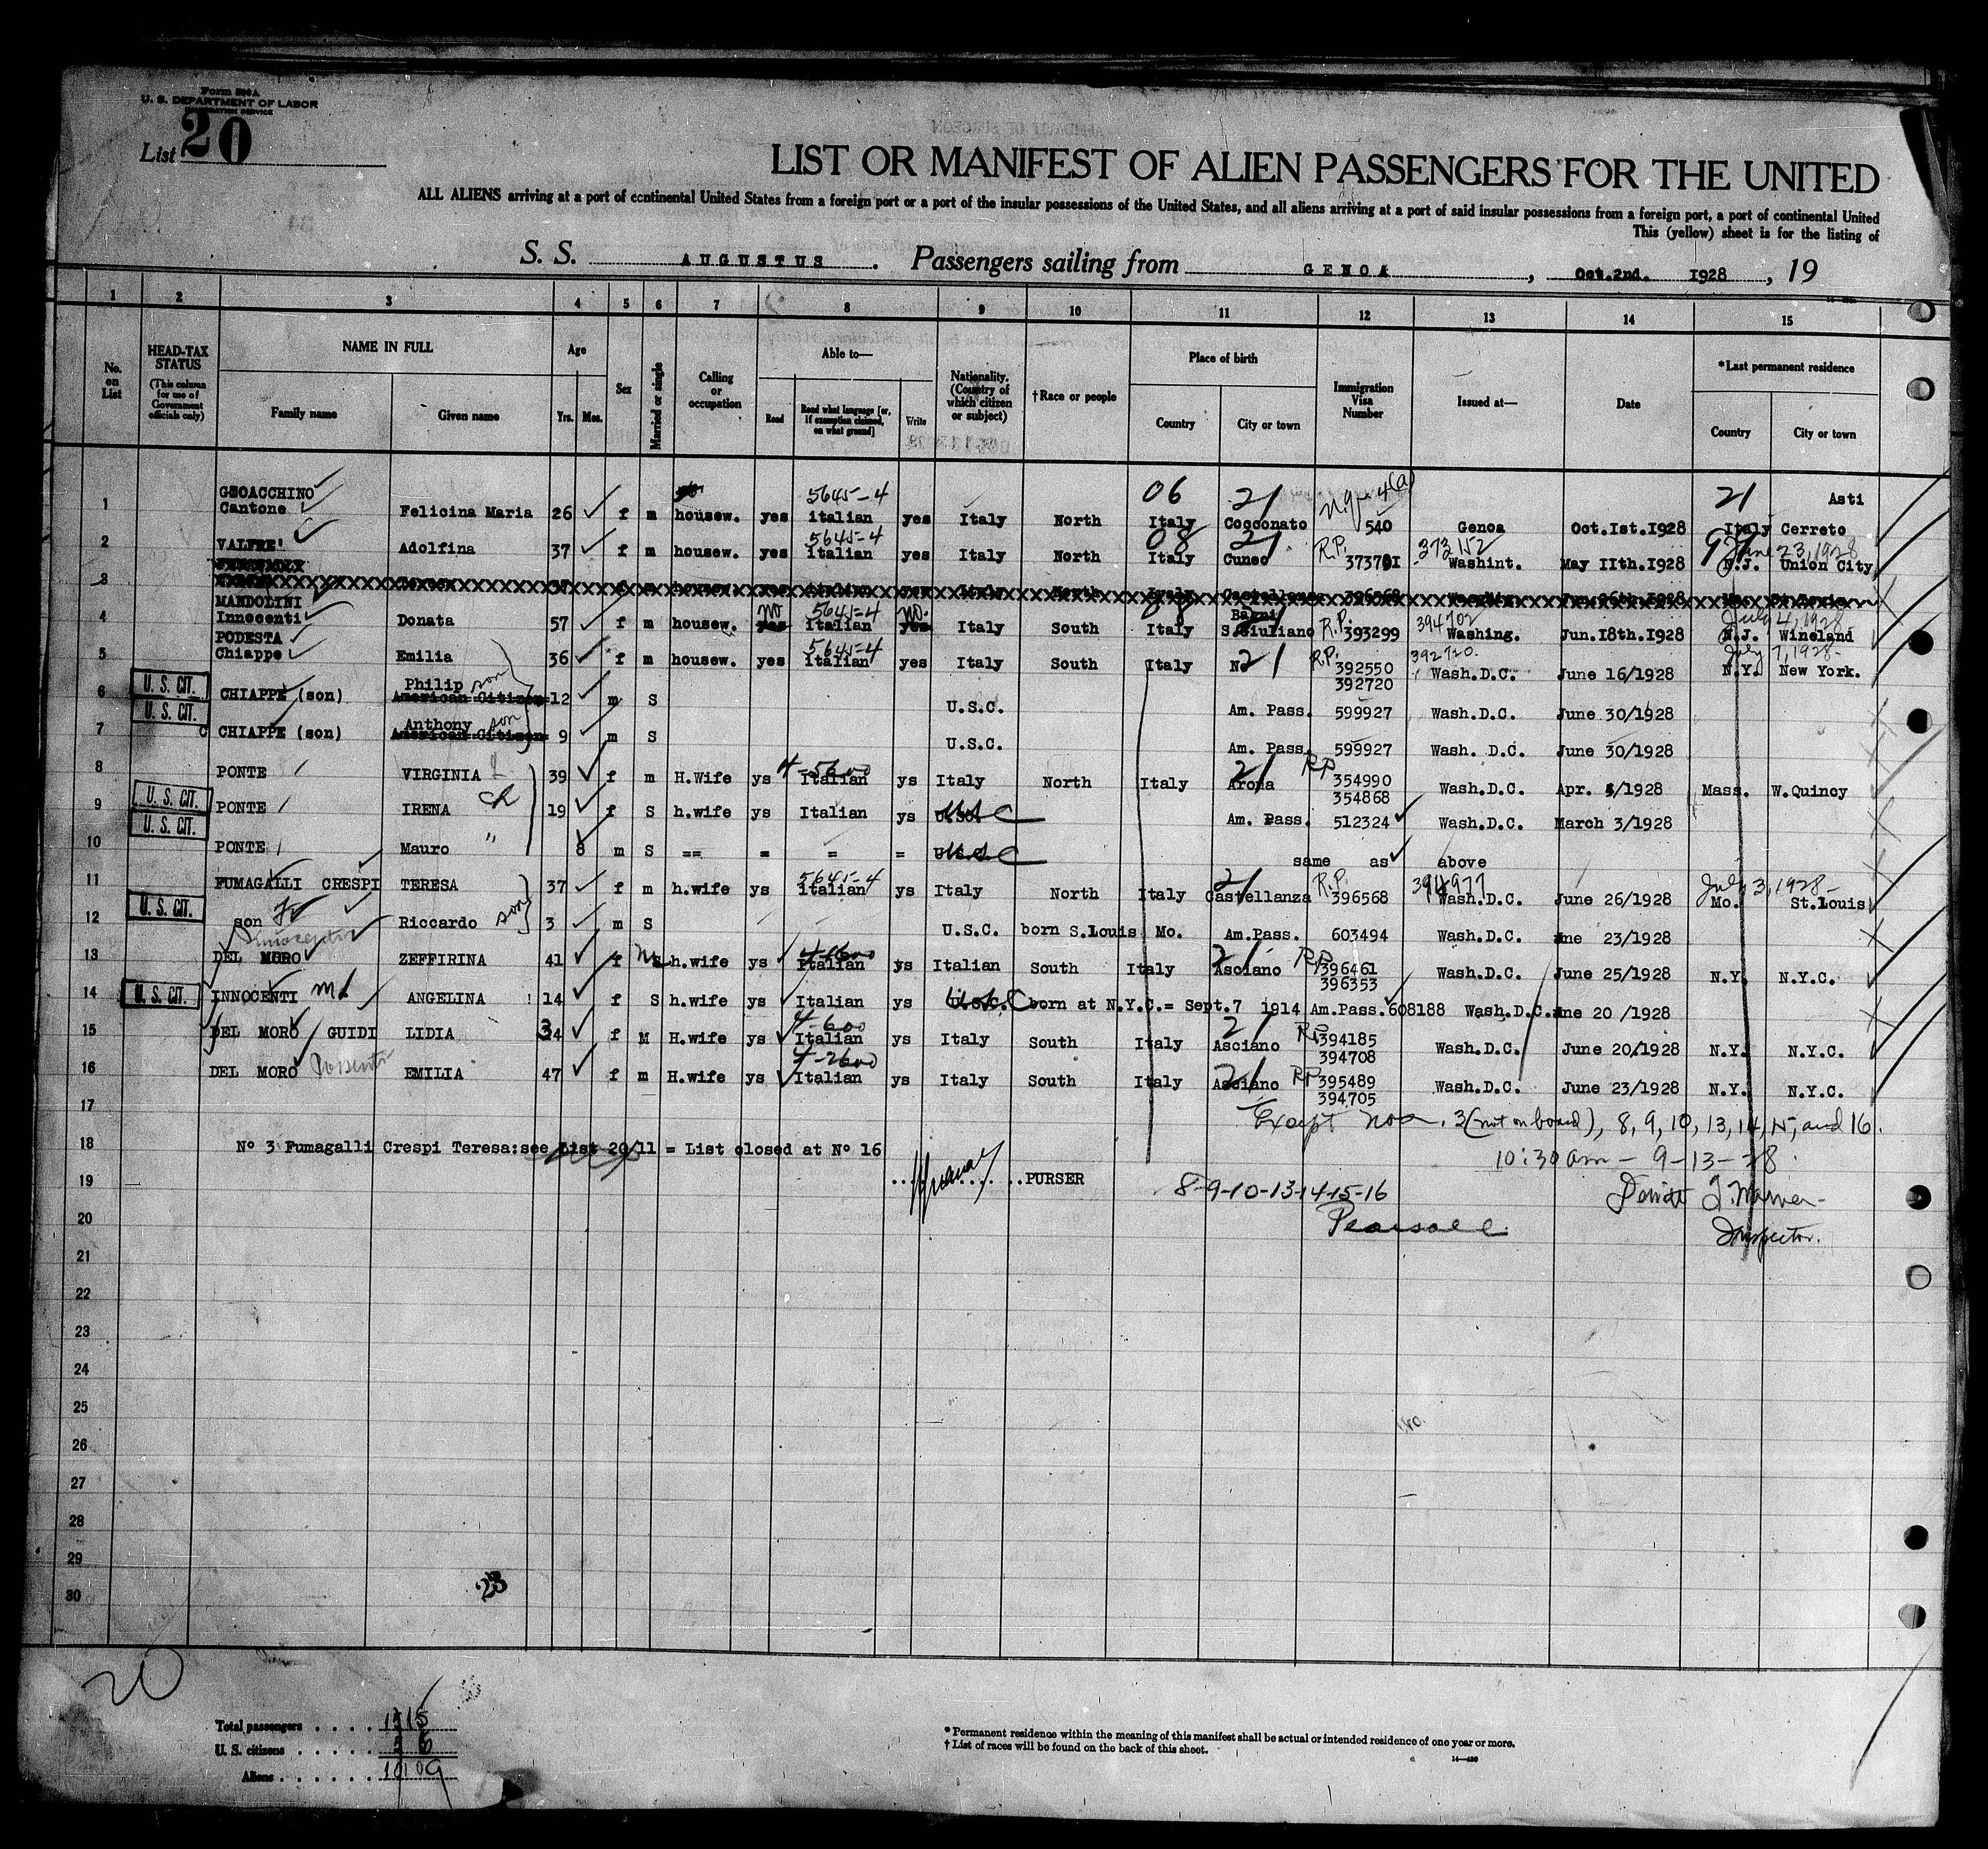 Form 500A
U. S. DEPARTMENT OF LABOR
IMMIGRATION SERVICE
List 20
LIST OR MANIFEST OF ALIEN PASSENGERS FOR THE UNITED
ALL ALIENS arriving at a port of continental United States from a foreign port or a port of the insular possessions of the United States, and all aliens arriving at a port of said insular possessions from a foreign port, a port of continental United
This (yellow) sheet is for the listing of
S. S. AUGUSTUS . Passengers sailing from GENOA , Oct.2nd. 1928 , 19
1 2 3 4 5 6 7 8 9 10 11 12 13 14 15
No. on List
HEAD-TAX STATUS (This column for use of Government officials only)
NAME IN FULL Family name Given name
Age Yrs. Mos.
Sex
Married or single
Calling or occupation
Able to— Read Read what language [or, if exemption claimed, on what ground] Write
Nationality. (Country of which citizen or subject)
†Race or people
Place of birth Country City or town
Immigration Visa Number
Issued at—
Date
*Last permanent residence Country City or town
GEOACCHINO 5645-4 06 21 21 Asti
1 Cantone Felicina Maria 26 f m housew. yes italian yes Italy North Italy Cocconato 540 Genoa Oct.1st.1928 Italy Cerreto
5645-4 08 21 R.P. 373152 June 23, 1928
2 VALFRE' Adolfina 37 f m housew. yes italian yes Italy North Italy Cuneo 373701 Washint. May 11th.1928 N.J. Union City
3
MANDOLINI no 5645-4 no. 394702 July 4, 1928
4 Innocenti Donata 57 f m housew. yes Italian yes Italy South Italy S.Giuliano R.P. 393299 Washing. Jun.18th.1928 N.J. Wineland
PODESTA 5645-4 R.P. 392720. July 7, 1928-
5 Chiappe Emilia 36 f m housew. yes Italian yes Italy South Italy 21 392550 Wash.D.C. June 16/1928 N.Y. New York.
392720
U. S. CIT. Philip son
6 CHIAPPE (son) American Citizen 12 m S U.S.C. Am. Pass. 599927 Wash.D.C. June 30/1928
U. S. CIT. Anthony son
7 CHIAPPE (son) American Citizen 9 m S U.S.C. Am. Pass. 599927 Wash. D.C. June 30/1928
8 PONTE VIRGINIA 39 f m H.Wife ys 4-5600 Italian ys Italy North Italy 21 Arona RP 354990 Wash.D.C. Apr. 5/1928 Mass. W.Quincy
354868
U. S. CIT.
9 PONTE IRENA ch 19 f S h.wife ys Italian ys U.S.C Am. Pass. 512324 Wash.D.C. March 3/1928
U. S. CIT.
10 PONTE Mauro " 8 m S == = = = U.S.C same as above
5645-4 21 R.P. 394977 July 3, 1928-
11 FUMAGALLI CRESPI TERESA 37 f m h.wife ys italian ys Italy North Italy Castellanza 396568 Wash.D.C. June 26/1928 Mo. St.Louis
U. S. CIT.
12 son Riccardo son 3 m S U.S.C. born S.Louis Mo. Am.Pass. 603494 Wash.D.C. une 23/1928
13 DEL MORO ZEFFIRINA 41 f h.wife ys Italian ys Italian South Italy 21 Asciano RP 396461 Wash.D.C. June 25/1928 N.Y. N.Y.C.
396353
U. S. CIT.
14 INNOCENTI ANGELINA 14 f S h.wife ys Italian ys U.S.C. born at N.Y.C.= Sept.7 1914 Am.Pass.608188 Wash.D.C. une 20 /1928
4-600
15 DEL MORO / GUIDI LIDIA 34 f M H.wife ys Italian ys Italy South Italy 21 Asciano RP 394185 Wash.D.C. June 20/1928 N.Y. N.Y.C.
4-2600 394708
16 DEL MORO EMILIA 47 f m H.wife ys Italian ys Italy South Italy 21 Asciano RP 395489 Wash.D.C. June 23/1928 N.Y. N.Y.C.
394705
17 Except nos. 3 (not on board), 8, 9, 10, 13, 14, 15, and 16.
18 Nº 3 Fumagalli Crespi Teresa:see List 20/11 = List closed at Nº 16
10:30 am - 9-13-28.
19 PURSER 8-9-10-13-14-15-16
20 Pearsall Inspector.
21
22
23
24
25
26
27
28
29
23
30
20
Total passengers . . . . 15
U. S. citizens . . . . . 6
Aliens . . . . . . 9
* Permanent residence within the meaning of this manifest shall be actual or intended residence of one year or more.
† List of races will be found on the back of this sheet.